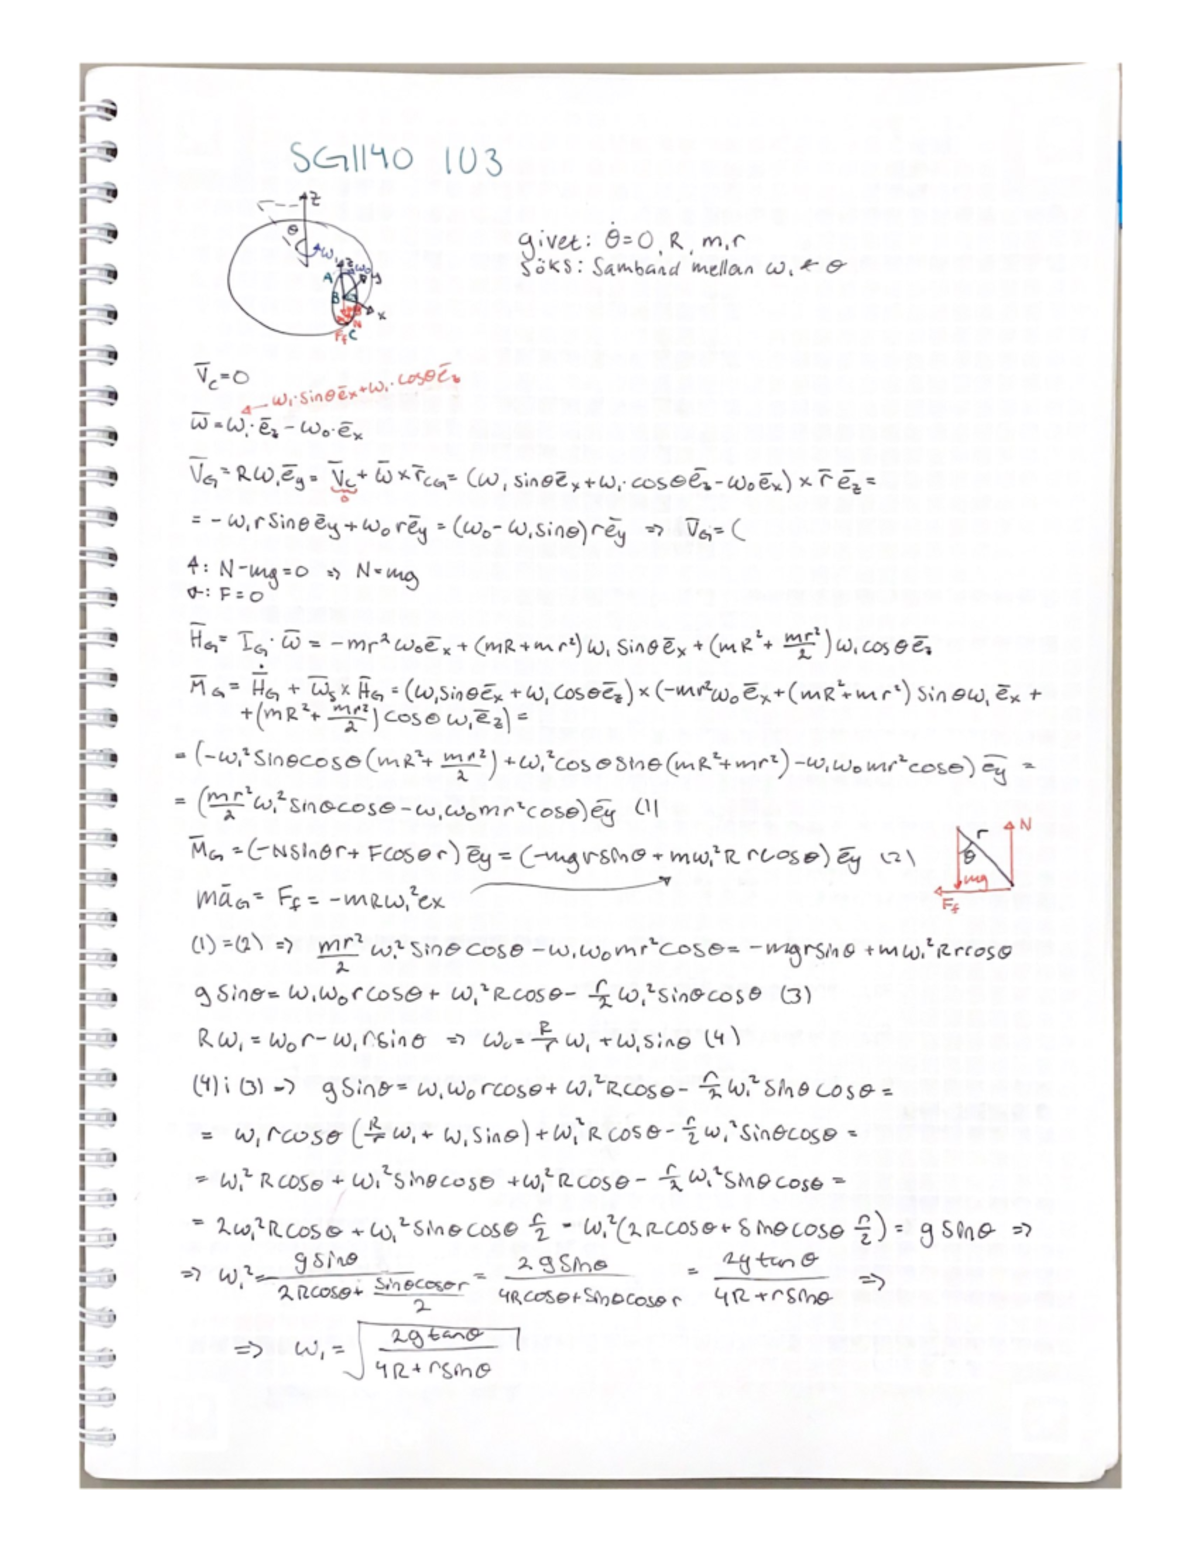 SG1140 IU3
z
θ
ω₁ z ω₀ y
A
B
x
N
F_f C
givet: θ̇=0, R, m, r
söks: Samband mellan ω₁ & θ
V̄_C=0
ω₁·sinθē_x+ω₁·cosθē_z
ω̄=ω₁·ē_z-ω₀·ē_x
V̄_G=Rω₁ē_y=V̄_C+ω̄×r̄_CG=(ω₁ sinθē_x+ω₁·cosθē_z-ω₀ē_x)×r̄ē_z=
0
=-ω₁rsinθē_y+ω₀rē_y=(ω₀-ω₁sinθ)rē_y ⇒ V̄_G=(
↑: N-mg=0 ⇒ N=mg
: F=0
H̄_G=I_G·ω̄=-mr²ω₀ē_x+(mR+mr²)ω₁ sinθē_x+(mR²+mr²/2)ω₁cosθē_z
M̄_G=H̄̇_G+ω̄_s×H̄_G=(ω₁sinθē_x+ω₁cosθē_z)×(-mr²ω₀ē_x+(mR²+mr²)sinθω₁ē_x+
+(mR²+mr²/2)cosθω₁ē_z)=
=(-ω₁²sinθcosθ(mR²+mr²/2)+ω₁²cosθsinθ(mR²+mr²)-ω₁ω₀mr²cosθ)ē_y=
=(mr²/2 ω₁²sinθcosθ-ω₁ω₀mr²cosθ)ē_y (1)
M̄_G=(-Nsinθr+Fcosθr)ē_y=(-mgrsinθ+mω₁²Rrcosθ)ē_y (2)
r N
θ
mg
F_f
mā_G=F_f=-mRω₁²ex
(1)=(2) ⇒ mr²/2 ω₁²sinθcosθ-ω₁ω₀mr²cosθ=-mgrsinθ+mω₁²Rrcosθ
gsinθ=ω₁ω₀rcosθ+ω₁²Rcosθ-r/2 ω₁²sinθcosθ (3)
Rω₁=ω₀r-ω₁rsinθ ⇒ ω₀=R/r ω₁+ω₁sinθ (4)
(4) i (3) ⇒ gsinθ=ω₁ω₀rcosθ+ω₁²Rcosθ-r/2 ω₁²sinθcosθ=
=ω₁rcosθ(R/r ω₁+ω₁sinθ)+ω₁²Rcosθ-r/2 ω₁²sinθcosθ=
=ω₁²Rcosθ+ω₁²sinθcosθ+ω₁²Rcosθ-r/2 ω₁²sinθcosθ=
=2ω₁²Rcosθ+ω₁²sinθcosθ r/2=ω₁²(2Rcosθ+sinθcosθ r/2)=gsinθ ⇒
⇒ ω₁²=gsinθ/(2Rcosθ+sinθcosθr/2)=2gsinθ/(4Rcosθ+sinθcosθr)=2gtanθ/(4R+rsinθ) ⇒
⇒ ω₁=√(2gtanθ/(4R+rsinθ))